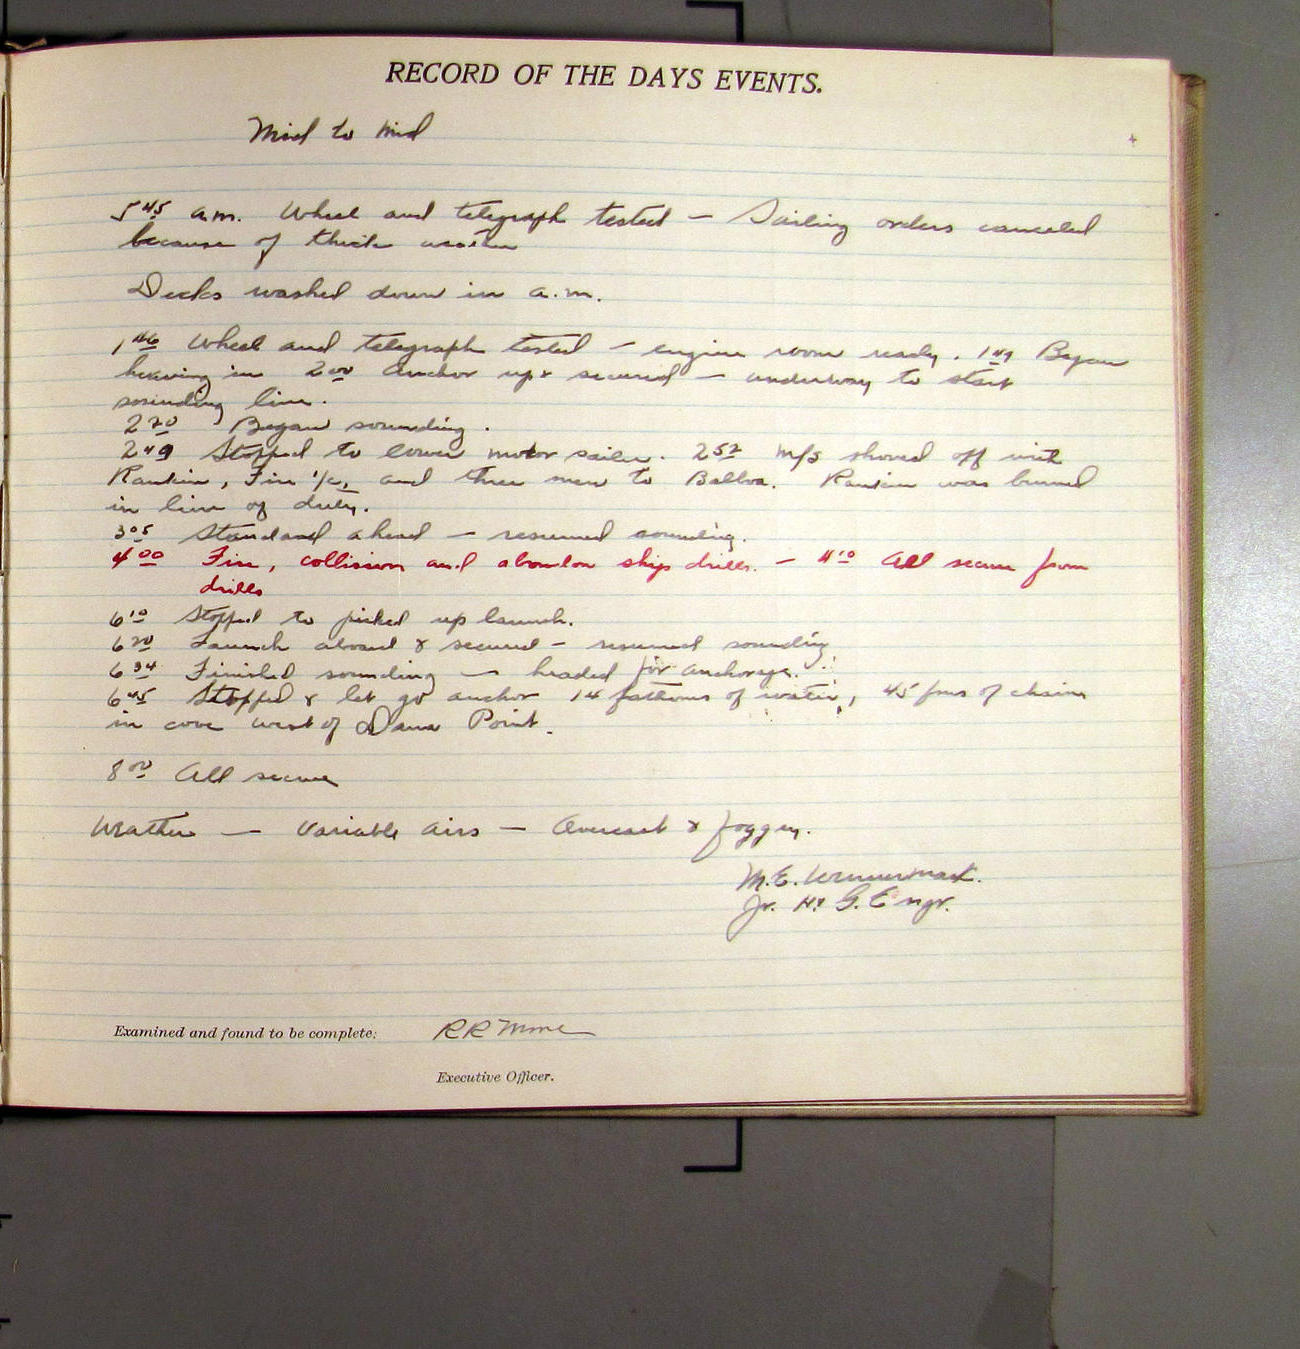 RECORD OF THE DAYS EVENTS.
Mid to Mid
5 45 a.m. Wheel and telegraph tested — Sailing orders canceled
because of thick weather
Decks washed down in a.m.
1 46 Wheel and telegraph tested — engine room ready. 1 49 Began
heaving in 2 00 Anchor up & secured — underway to start
sounding line.
2 20 Began sounding.
2 49 Stopped to lower motor sailer. 2 52 M/S shoved off with
Rankin, Fire 1/c, and three men to Balboa. Rankin was burned
in line of duty.
3 05 Standard ahead — resumed sounding.
4 00 Fire, collision and abandon ship drills. — 4 10 All secure from
drills
6 10 Stopped to picked up launch.
6 20 Launch aboard & secured — resumed sounding
6 34 Finished sounding — headed for anchorage.
6 45 Stopped & let go anchor 14 fathoms of water, 45 fms of chain
in cove west of Dana Point.
8 00 All secure
Weather — Variable airs — Overcast & foggy.
M.E. Wennermark.
Jr. H. & G. Engr.
Examined and found to be complete:
R R
Executive Officer.